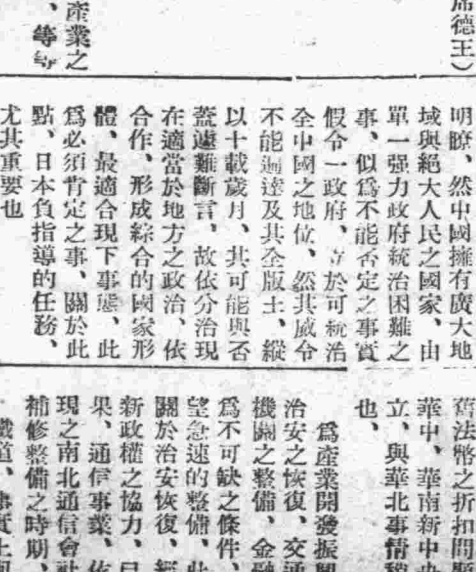 席德王）
產業之
、等等
明瞭、然中國擁有廣大地
域與絕大人民之國家、由
單一强力政府統治困難之
事、似爲不能否定之事實
假令一政府、立於可統治
全中國之地位、然其威令
不能遍達及其全版土、縱
以十載歲月、其可能與否
蓋遽難斷言、故依分治現
在適當於地方之政治、依
合作、形成綜合的國家形
體、最適合現下事態、此
爲必須肯定之事、關於此
點、日本負指導的任務、
尤其重要也
舊法幣之折扣問
華中、華南新中央
立、與華北事情
也、
爲產業開發振
治安之恢復、交通
機關之整備、金融
爲不可缺之條件、
望急速的整備、此
關於治安恢復、
新政權之協力、
果、通信事業、依
現之南北通信會社
補修整備之時期、
鐵道、事實上